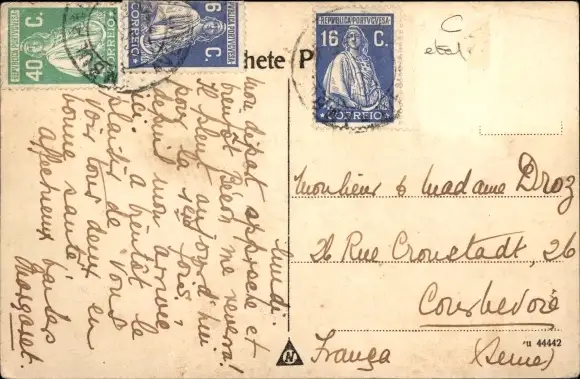 REPUBLICA PORTVGVESA
40 C.
CORREIO
REPUBLICA PORTVGVESA
C.
CORREIO
hete P
REPVBLICA PORTVGVESA
16 C.
CORREIO
C
etal
lundi.
mon départ approche et
bientôt Paris me reverra!
Il pleut aujourd'hui
pour la 1ère fois
depuis mon arrivée
ici. à bientôt le
plaisir de vous
voir tous deux en
bonne santé
affectueux baisers
Margaret.
Monsieur & Madame Droz
26 Rue Cronstadt, 26
Courbevoie
(Seine)
França
N
44442